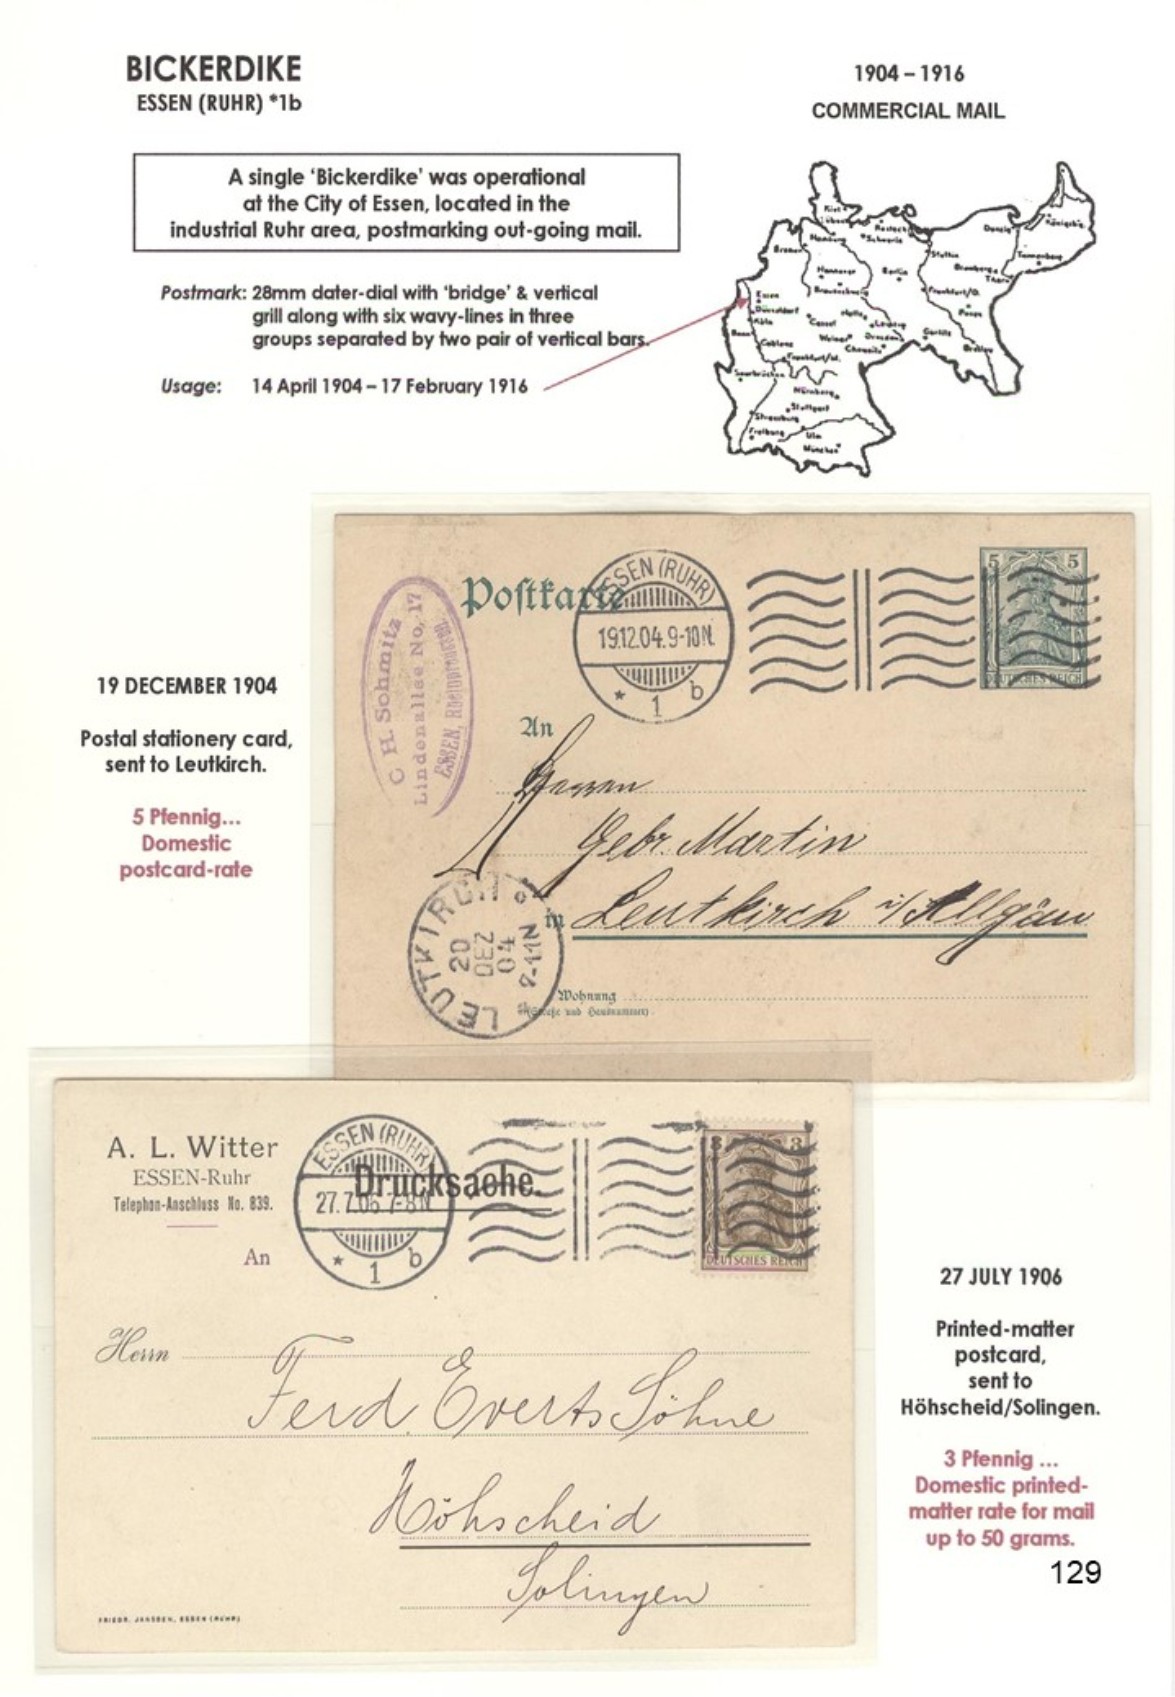 BICKERDIKE
ESSEN (RUHR) *1b
1904 – 1916
COMMERCIAL MAIL
A single ‘Bickerdike’ was operational
at the City of Essen, located in the
industrial Ruhr area, postmarking out-going mail.
Postmark: 28mm dater-dial with ‘bridge’ & vertical
grill along with six wavy-lines in three
groups separated by two pair of vertical bars.
Usage: 14 April 1904 – 17 February 1916
Kiel
Lübeck
Rostock
Schwerin
Hamburg
Bremen
Danzig
Königsbg.
Tannenberg
Stettin
Bromberg
Thorn
Hannover
Berlin
Braunschweig
Frankfurt/O.
Posen
Essen
Düsseldorf
Köln
Cassel
Halle
Leipzig
Görlitz
Bonn
Weimar
Dresden
Breslau
Coblenz
Chemnitz
Frankfurt/M.
Saarbrücken
Nürnberg
Stuttgart
Strassburg
Freiburg
Ulm
München
19 DECEMBER 1904
Postal stationery card,
sent to Leutkirch.
5 Pfennig...
Domestic
postcard-rate
C. H. Schmitz
Lindenallee No. 17
ESSEN, Rheinprovinz.
Postkarte
ESSEN (RUHR)
19.12.04.9-10N.
* 1 b
5 5
DEUTSCHES REICH
An
Herren
Gebr. Martin
in Leutkirch i/Allgäu
Wohnung
(Straße und Hausnummer)
LEUTKIRCH
20
DEZ
04
A. L. Witter
ESSEN-Ruhr
Telephon-Anschluss No. 839.
An
ESSEN (RUHR)
27.7.06.7-8N.
* 1 b
Drucksache.
3 3
DEUTSCHES REICH
Herrn
Ferd. Everts Söhne
Höhscheid
Solingen
FRIEDR. JANSSEN, ESSEN (RUHR)
27 JULY 1906
Printed-matter
postcard,
sent to
Höhscheid/Solingen.
3 Pfennig ...
Domestic printed-
matter rate for mail
up to 50 grams.
129